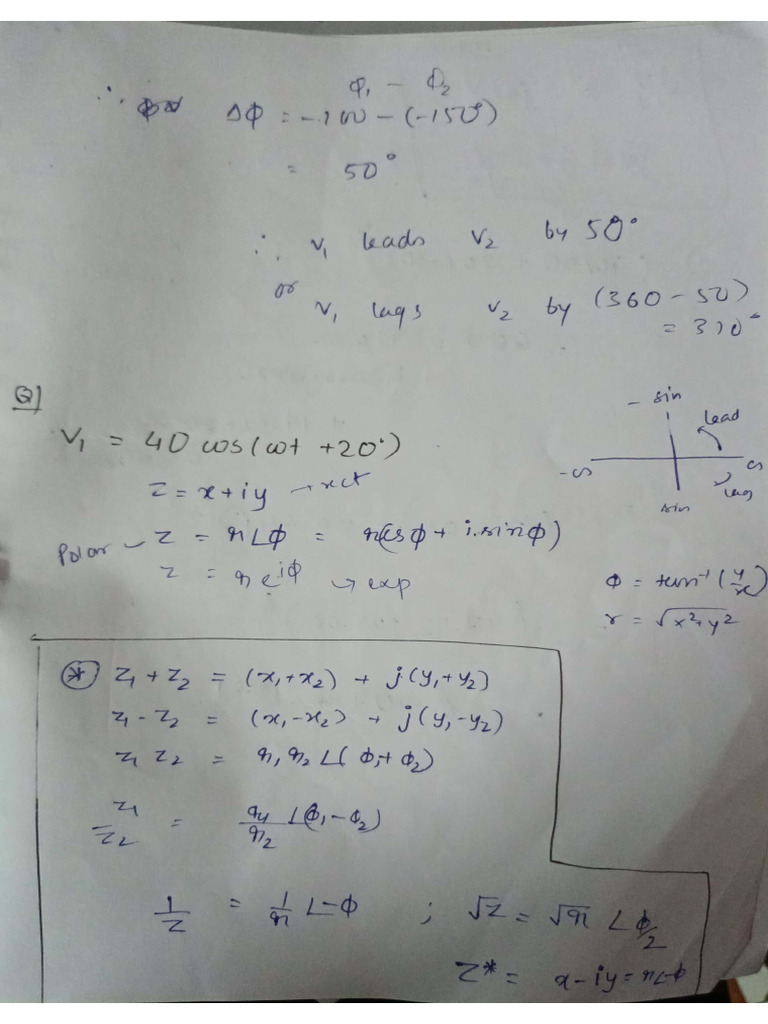 Φ₁ - Φ₂
∴ ΔΦ = -100 - (-150°)
= 50°
∴ V₁ leads V₂ by 50°
or
V₁ lags V₂ by (360 - 50)
= 310°
Q)
V₁ = 40 cos(ωt + 20°)
z = x + iy → rect
Polar - z = r∠Φ = r(cosΦ + i.sinΦ)
z = re^{iΦ} → exp
- sin
lead
-cos
cos
lag
sin
Φ = tan⁻¹(y/x)
r = √x²+y²
* z₁ + z₂ = (x₁+x₂) + j(y₁+y₂)
z₁ - z₂ = (x₁-x₂) + j(y₁-y₂)
z₁ z₂ = r₁r₂ ∠(Φ₁+Φ₂)
z₁/z₂ = r₁/r₂ ∠(Φ₁-Φ₂)
1/z = 1/r ∠-Φ ; √z = √r ∠Φ/2
z* = x-iy = r∠-Φ